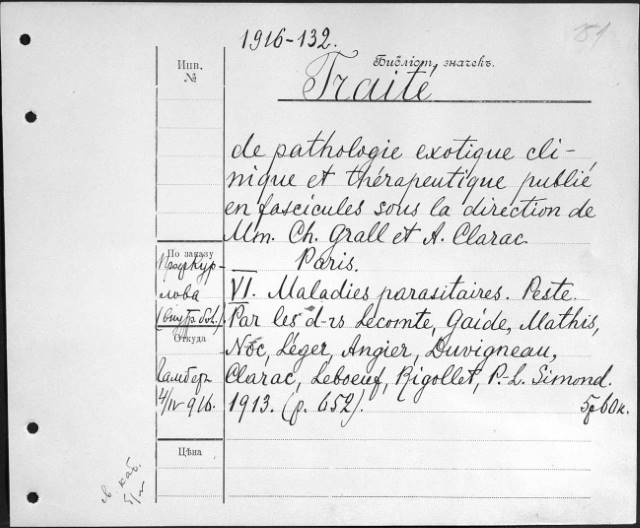 1916-132.
Инв.
№
Библіот. значекъ.
Traité
de pathologie exotique cli-
nique et thérapeutique publié
en fascicules sous la direction de
Mm. Ch. Grall et A. Clarac
По заказу
Paris.
лова
(внутр. бол.).
VI. Maladies parasitaires. Peste.
Par les d-rs Lecomte, Gaide, Mathis,
Откуда
Noc, Léger, Angier, Duvigneau,
Clarac, Leboeuf, Rigollet, P.-L. Simond.
4/IV 916.
1913. (p. 652).
5р60к.
Цѣна